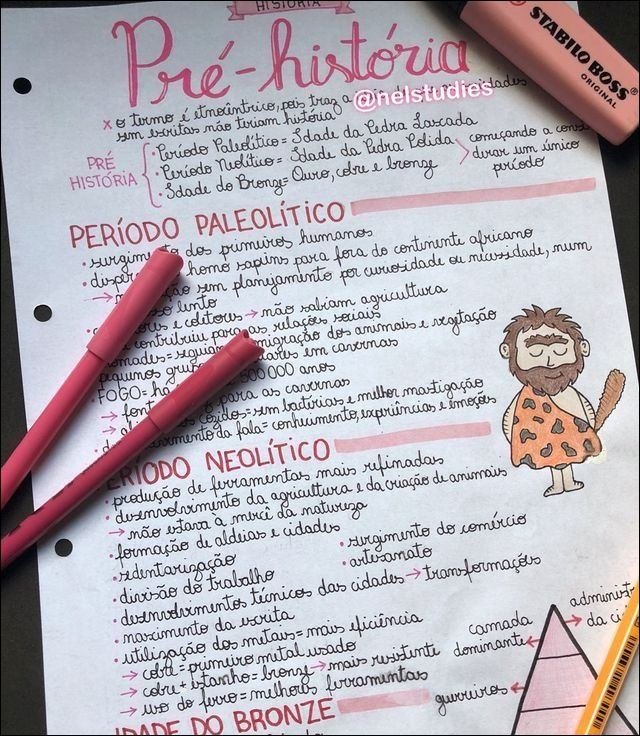 HISTÓRIA
Pré-história
@nelstudies
STABILO BOSS
ORIGINAL
x o termo é etnocêntrico, pois traz a
sem escritas não teriam história
PRÉ HISTÓRIA
• Período Paleolítico = Idade da Pedra Lascada
• Período Neolítico = Idade da Pedra Polida
• Idade do Bronze = Ouro, cobre e bronze
começando a consi
dirar um único
período
PERÍODO PALEOLÍTICO
• surgimento dos primeiros humanos
• homo sapiens para fora do continente africano
→ sem planejamento por curiosidade ou necessidade, num
lento
e coletores → não sabiam agricultura
contribuiu para as relações sociais
migração dos animais e vegetação
pequenos em cavernas
• FOGO = 500 000 anos
→ para as cavernas
→ cozidos = sem bactérias e melhor mastigação
da fala = conhecimento, experiências e emoções
PERÍODO NEOLÍTICO
• produção de ferramentas mais refinadas
• desenvolvimento da agricultura e da criação de animais
→ não estava à mercê da natureza
• formação de aldeias e cidades
• sedentarização
• divisão do trabalho
• surgimento do comércio
• artesanato
• desenvolvimentos técnicos das cidades → transformações
• nascimento da escrita
• utilização dos metais = mais eficiência
→ cobre = primeiro metal usado
→ cobre + estanho = bronze → mais resistente
→ uso do ferro = melhores ferramentas
IDADE DO BRONZE
camada
dominante
guerreiros
administ
da ci